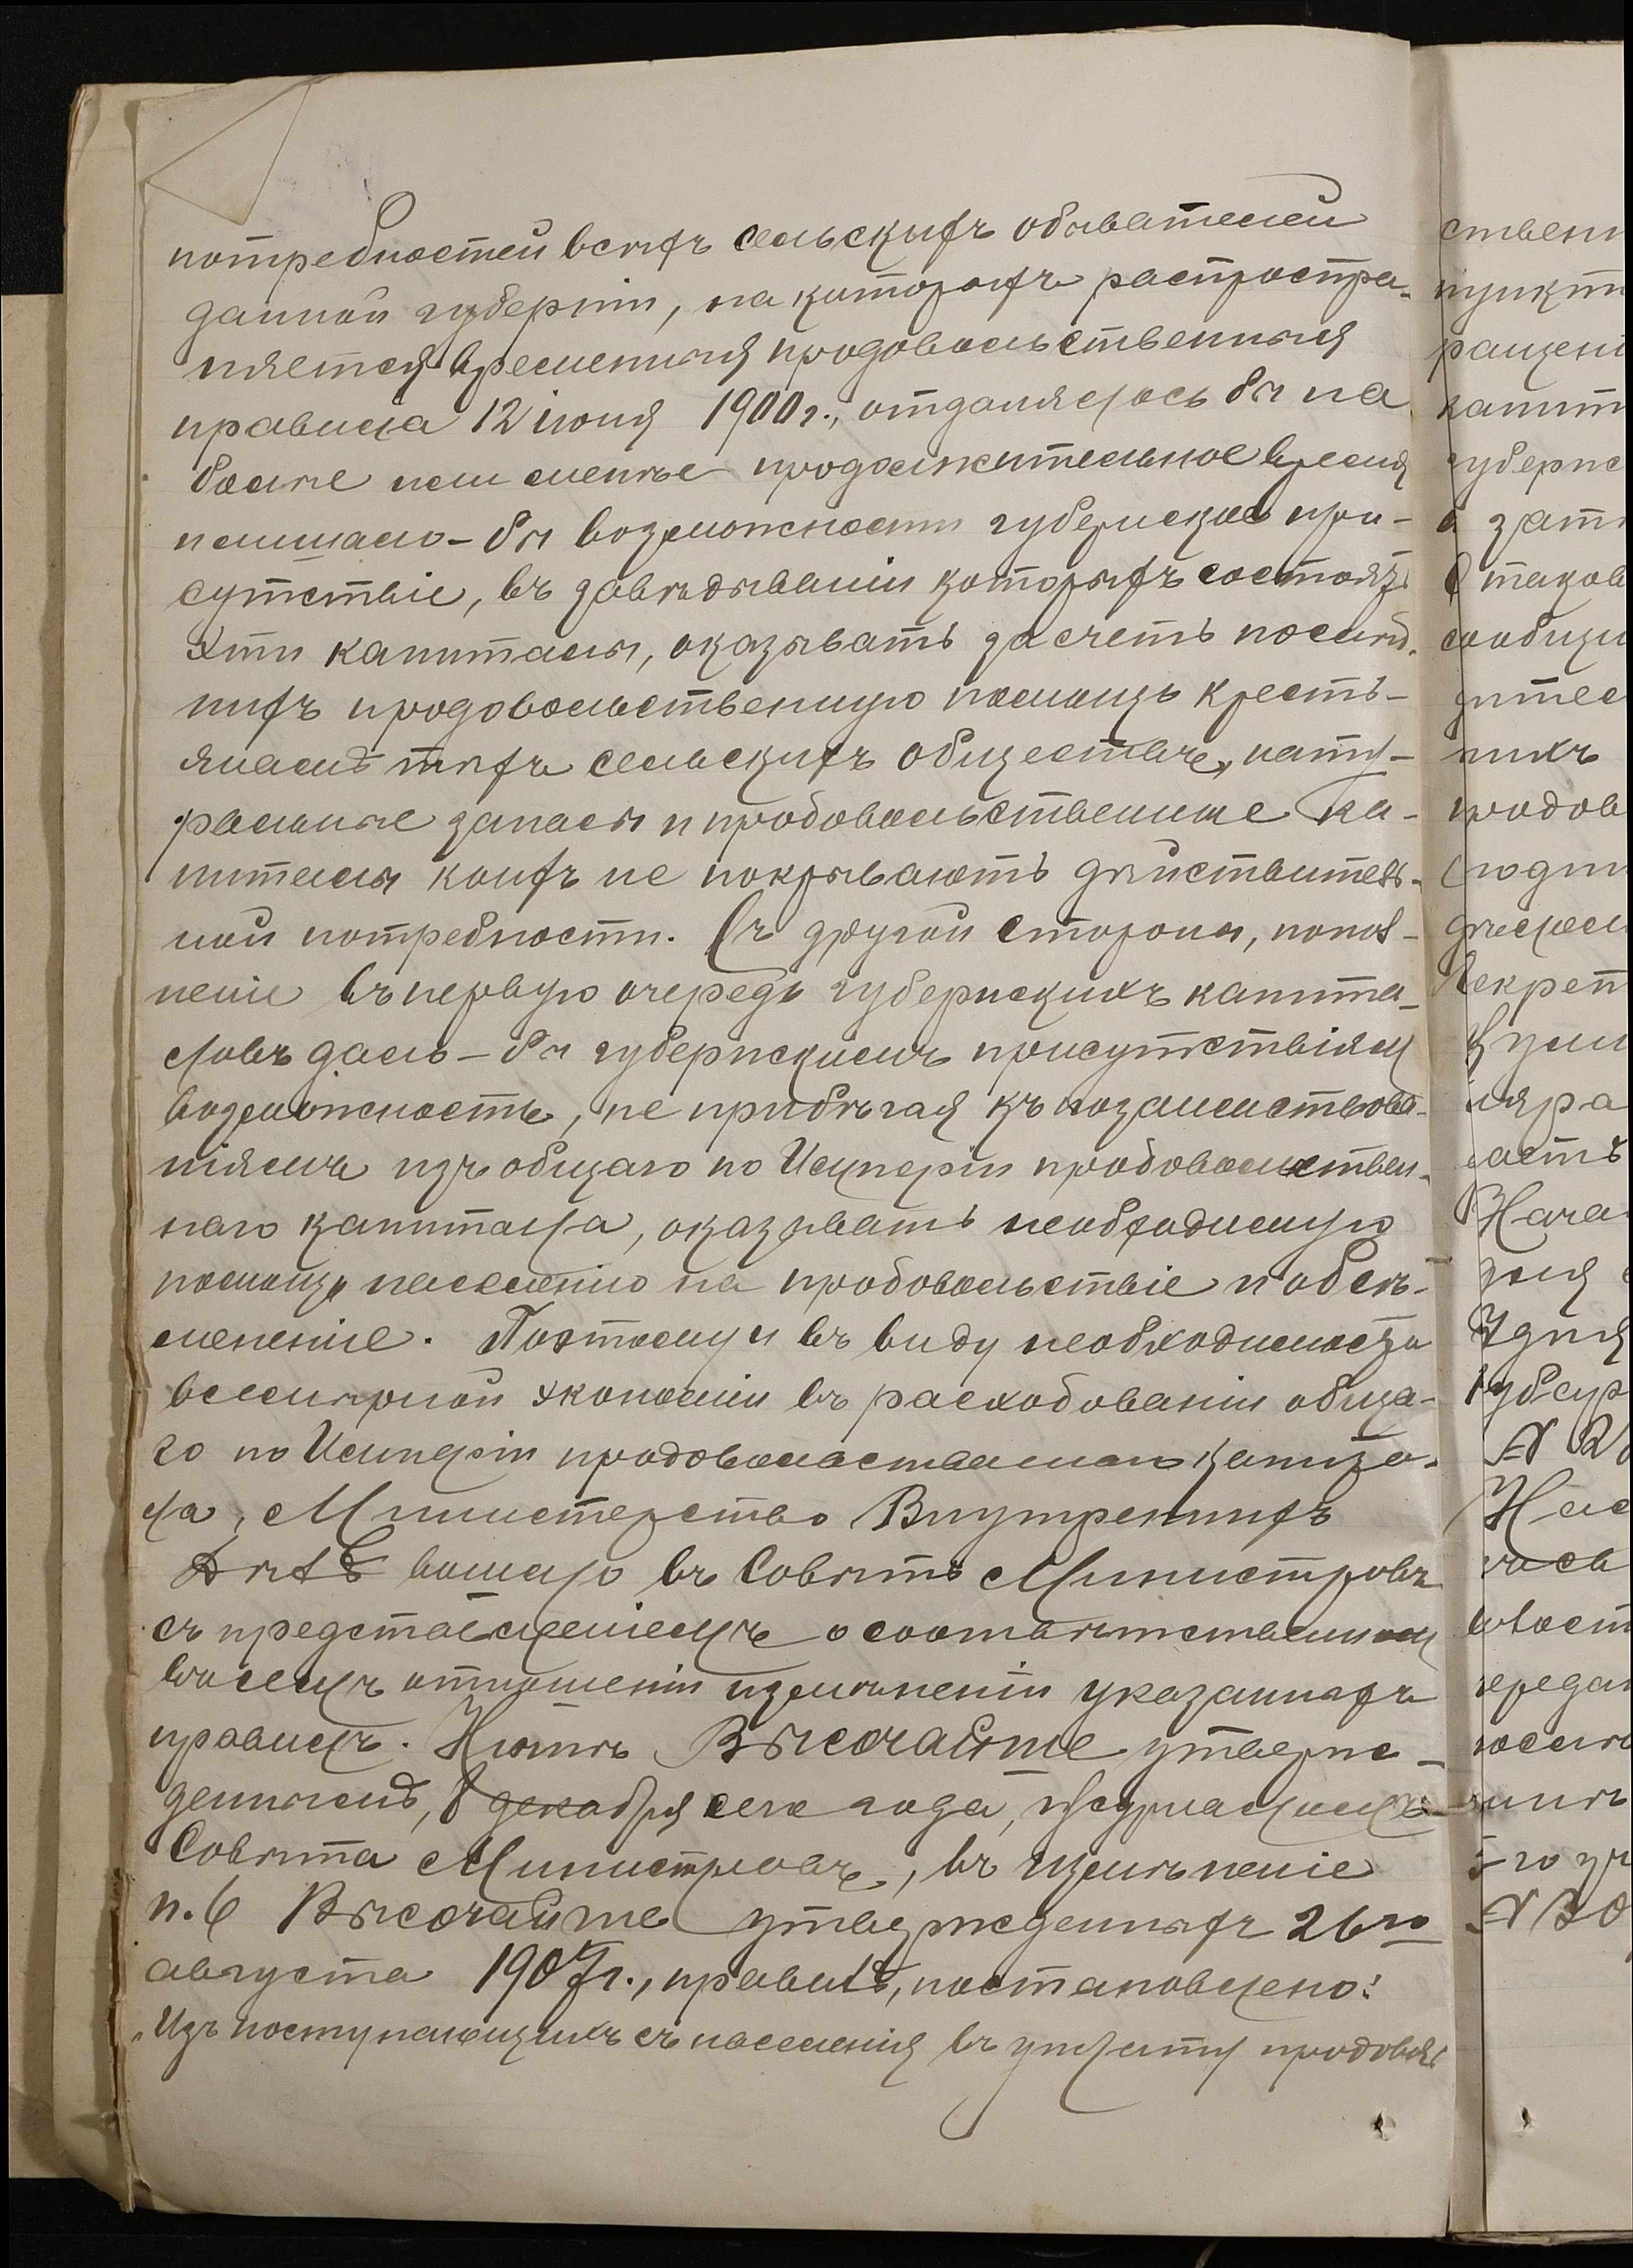 потребностей всѣхъ сельскихъ обывателей
данной губерніи, на которыхъ распростра-
няется временныя продовольственныя
правила 12 іюня 1900 г., отдалялось бы на
болѣе или менѣе продолжительное время
и лишало-бы возможности губернское при-
сутствіе, въ завѣдываніи которыхъ состоятъ
эти капиталы, оказывать за счетъ послѣд-
нихъ продовольственную помощь кресть-
янамъ тѣхъ сельскихъ обществъ, нату-
ральные запасы и продовольственные ка-
питалы коихъ не покрываютъ дѣйствитель-
ной потребности. Съ другой стороны, попол-
неніе въ первую очередь губернскихъ капита-
ловъ дало-бы губернскимъ присутствіям
возможность, не прибѣгая къ позаимствова-
ніямъ изъ общаго по Имперіи продовольствен-
наго капитала, оказывать необходимую
помощь населенію на продовольствіе и обсѣ-
мененіе. Поэтому и въ виду необходимости
всемѣрной экономіи въ расходованіи обща-
го по Имперіи продовольственнаго капита-
ла, Министерство Внутреннихъ
Дѣлъ вошло въ Совѣтъ Министровъ
съ представленіемъ о соотвѣтственном
въ семъ отношеніи измѣненіи указанныхъ
правилъ. Нынѣ Высочайше утверж-
деннымъ, 8 декабря сего года, журналомъ
Совѣта Министровъ, въ измѣненіе
п. 6 Высочайше утвержденныхъ 26го
августа 1907 г., правилъ, постановлено:
„Изъ поступающихъ съ населенія въ уплату продоволь
ствен
пункт
ращені
капит
губернс
а зат
О таков
сообщи
жител
никъ
продов
(подп
дѣлом
Секрет
ляра
асть
Нача
для
7 дня
Губер
N
Нас
часв
вост
передан
N 30